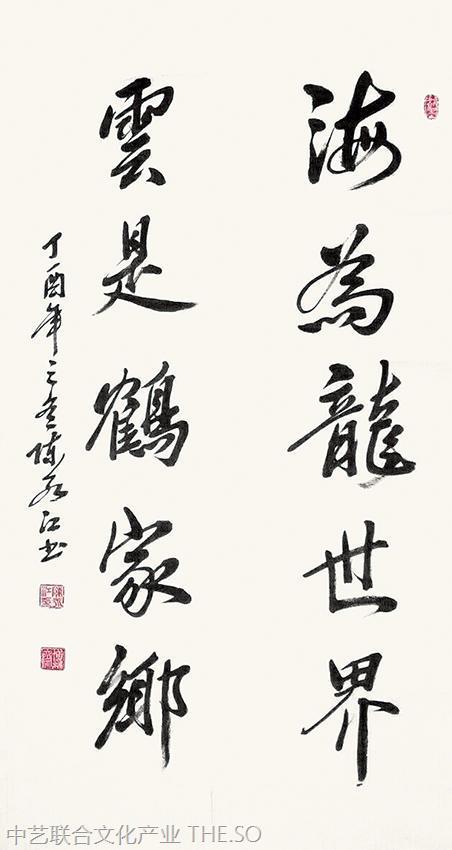 海為龍世界
雲是鶴家鄉
丁酉年之冬陳江书
中艺联合文化产业 THE.SO